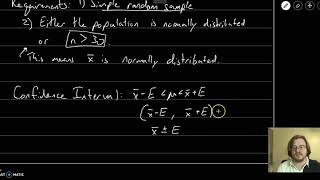 Requirements: 1) Simple random sample
2) Either the population is normally distributed
or n > 30.
This means x̄ is normally distributed.
Confidence Interval: x̄-E < μ < x̄+E
(x̄-E, x̄+E)
x̄ ± E